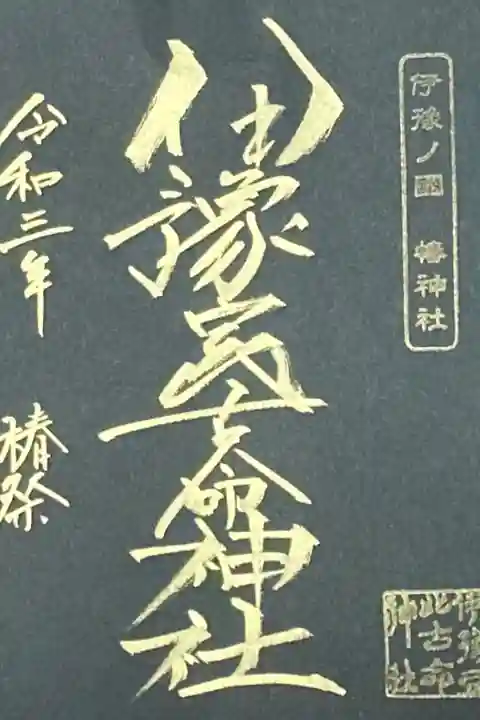 伊豫ノ國 椿神社
伊豫豆比古命神社
令和三年 椿祭
伊豫豆
比古命
神社